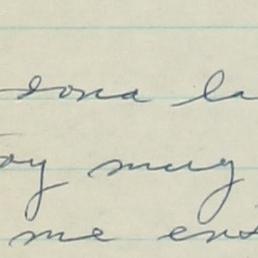 dona la
oy muy
me ens